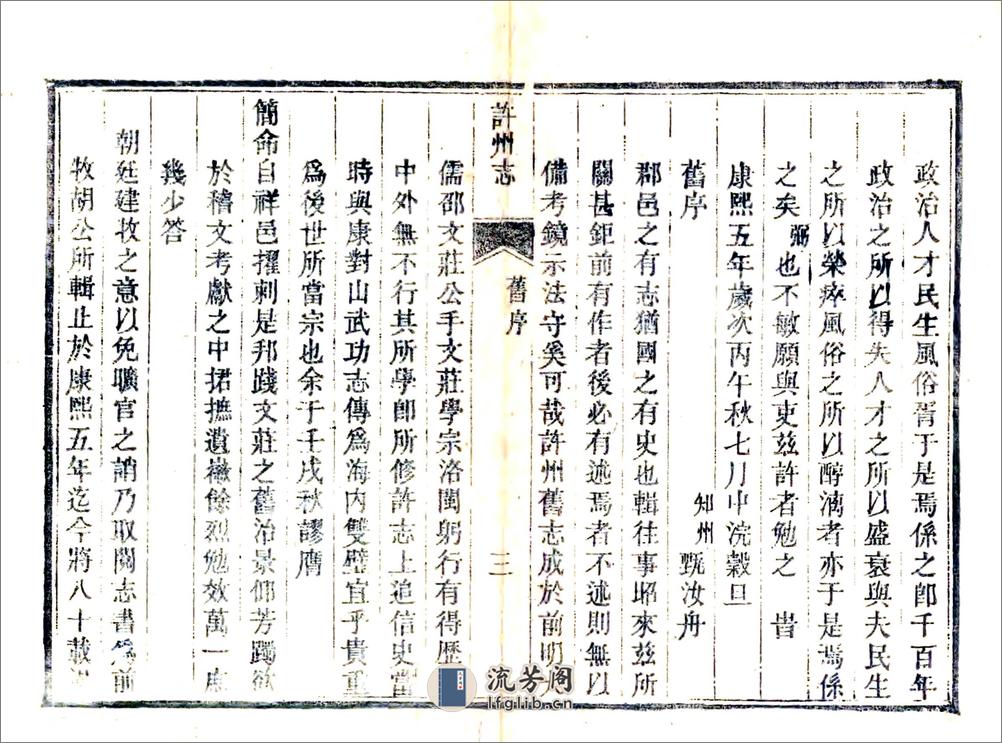 政治人才民生風俗胥于是焉係之卽千百年
政治之所以得失人才之所以盛衰與夫民生
之所以榮瘁風俗之所以醇漓者亦于是焉係
之矣弼也不敏願與吏茲許者勉之 旹
康熙五年歲次丙午秋七月中浣穀旦
知州 甄汝舟
舊序
郡邑之有志猶國之有史也輯往事昭來茲所
關甚鉅前有作者後必有述焉者不述則無以
備考鏡示法守奚可哉許州舊志成於前明
許州志 舊序 三
儒邵文莊公手文莊學宗洛閩躬行有得歷
中外無不行其所學卽所修許志上追信史當
時與康對山武功志傳爲海內雙璧宜乎貴重
爲後世所當宗也余于壬戌秋謬膺
簡命自祥邑擢刺是邦踐文莊之舊治景仰芳躅欲
於稽文考獻之中捃摭遺徽餘烈勉效萬一庶
幾少答
朝廷建牧之意以免曠官之誚乃取閱志書爲前
牧胡公所輯止於康熙五年迄今將八十載
流芳阁
lfglib.cn